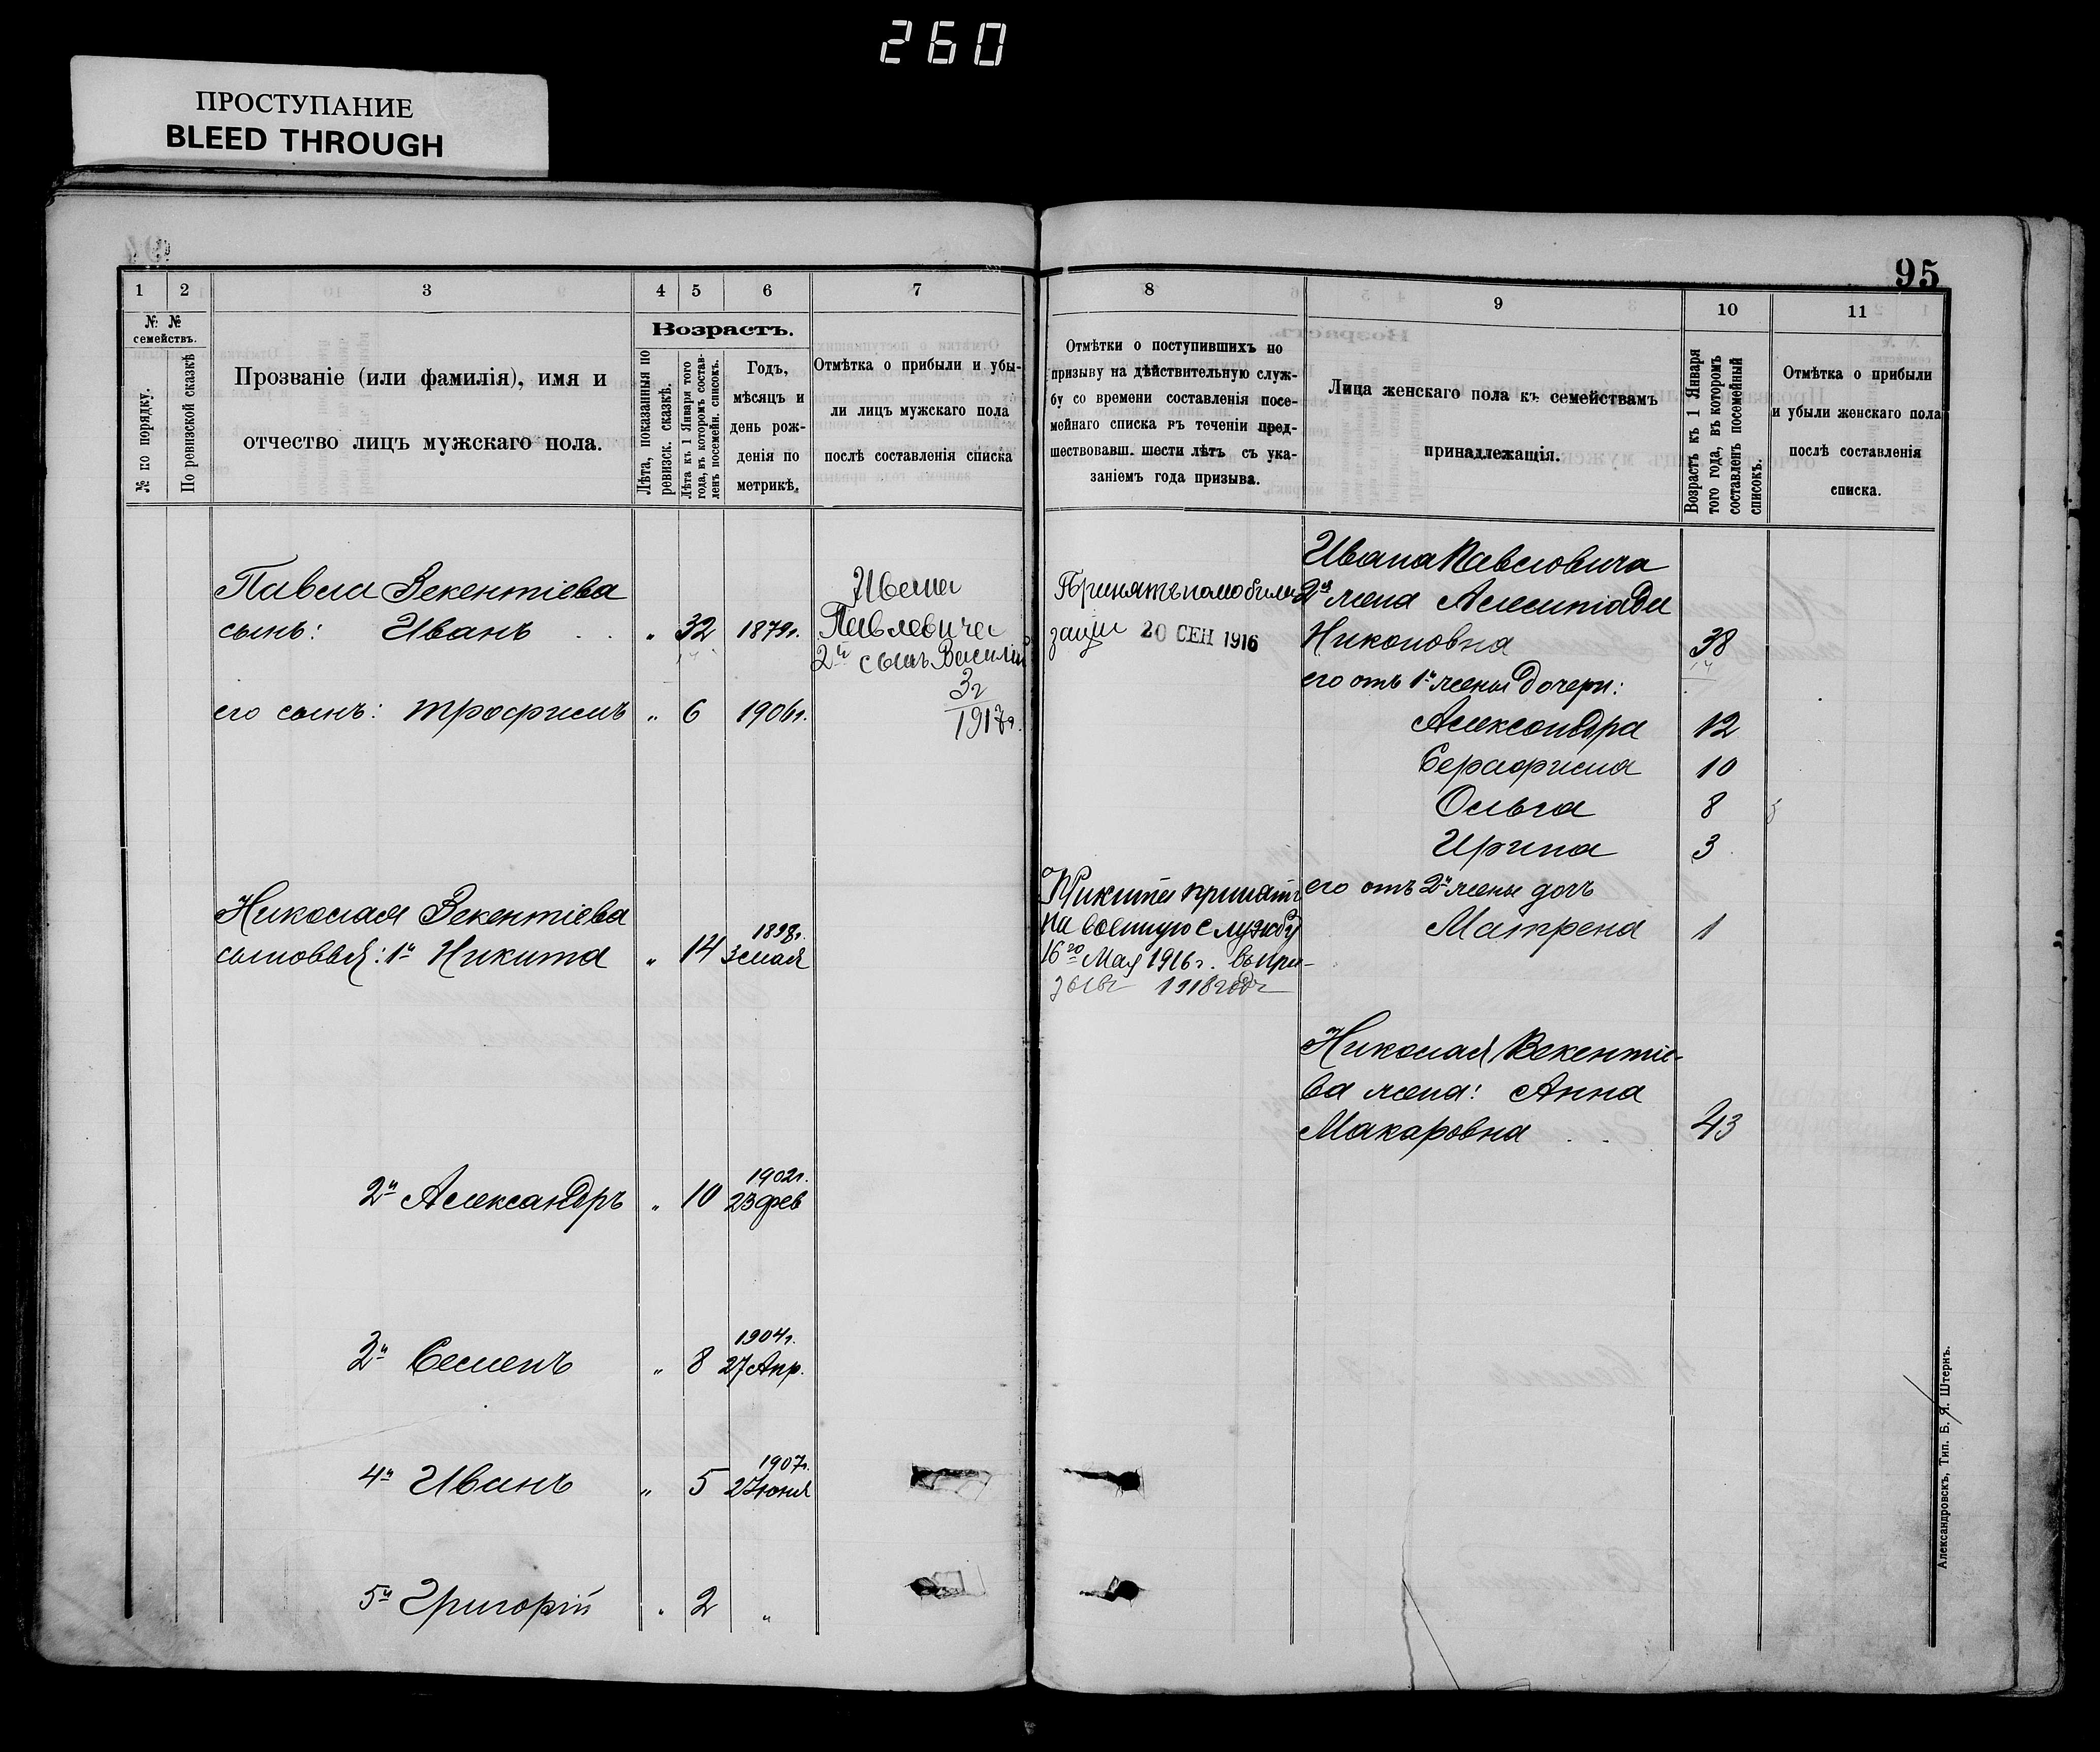 260
ПРОСТУПАНИЕ
BLEED THROUGH
95
1 2 3 4 5 6 7
№ №
семействъ.
№ по порядку.
По ревизской сказкѣ
Прозваніе (или фамилія), имя и
отчество лицъ мужскаго пола.
Возрастъ.
Лѣта, показанныя по
ревизск. сказкѣ.
Лѣта къ 1 Января того
года, въ которомъ состав-
ленъ посемейн. списокъ.
Годъ,
мѣсяцъ и
день рож-
денія по
метрикѣ.
Отмѣтка о прибыли и убы-
ли лицъ мужскаго пола
послѣ составленія списка
Павла Векентіева
сынъ: Иванъ . . " 32 1879г.
его сынъ: Трофимъ " 6 1906г.
Ивана
Павловича
2й сынъ Василій
3г
1917г.
Николая Векентіева
сыновья: 1й Никита " 14 1898г.
3 мая
2й Александръ " 10 1902г.
23 фев
3й Семенъ " 8 1904г.
27 Апр.
4й Иванъ " 5 1907г.
27 юня
5й Григорій " 2 "
8 9 10 11
Отмѣтки о поступившихъ по
призыву на дѣйствительную служ-
бу со времени составленія посе-
мейнаго списка въ теченіи пред-
шествовавш. шести лѣтъ съ ука-
заніемъ года призыва.
Лица женскаго пола къ семействамъ
принадлежащія.
Возрастъ къ 1 Января
того года, въ которомъ
составленъ посемейный
списокъ.
Отмѣтка о прибыли
и убыли женскаго пола
послѣ составленія
списка.
Принятъ по мобили
заціи 20 СЕН 1916
Никита принятъ
на военную службу
16го Мая 1916г. въ при-
зывъ 1918 года
Ивана Павловича
2я жена
Никоновна 38
его отъ 1й жены дочери:
Александра 12
Серафима 10
Ольга 8
Ирина 3
его отъ 2й жены дочь
Матрена 1
Николая Векентіе-
ва жена: Анна
Макаровна . . 43
Александровскъ, Тип. Б. Я. Штернъ.